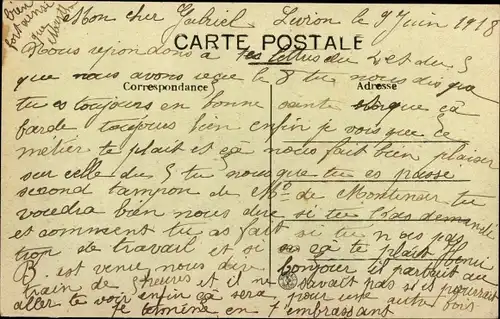 bien
fort ainsi
que
Mon cher Gabriel Livron le 9 Juin 1918
CARTE POSTALE
Nous repondons a tes lettres du 2 et du 5
que nous avons reçu le 8 tu nous dis que
Correspondance Adresse
tu es toujours en bonne sante et que ça
barde toujours bien enfin je vois que ce
métier te plait et ça nous fait bien plaisir
sur celle du 5 tu nous que tu es passe
second tampon de de tu
voudra bien nous dire si tu l'as demandé
et comment tu as fait si tu n'as pas
trop de travail et si ça te plait Henri
B. est venu nous dire bonjour il partait au
train de 5 heures et il ne savait pas si il pourrait
aller te voir enfin ça sera pour une autre fois
je termine en t'embrassant